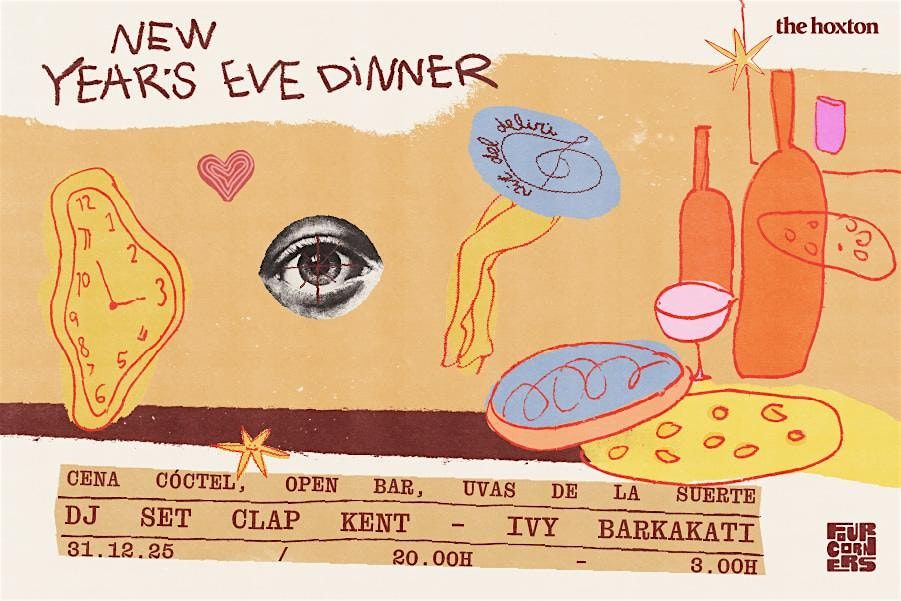 NEW
YEAR'S EVE DINNER
the hoxton
nit del deliri
12
1
11
2
10
3
9
8
5
7
6
CENA CÓCTEL, OPEN BAR, UVAS DE LA SUERTE
DJ SET CLAP KENT - IVY BARKAKATI
31.12.25 / 20.00H - 3.00H
FOUR
CORN
ERS